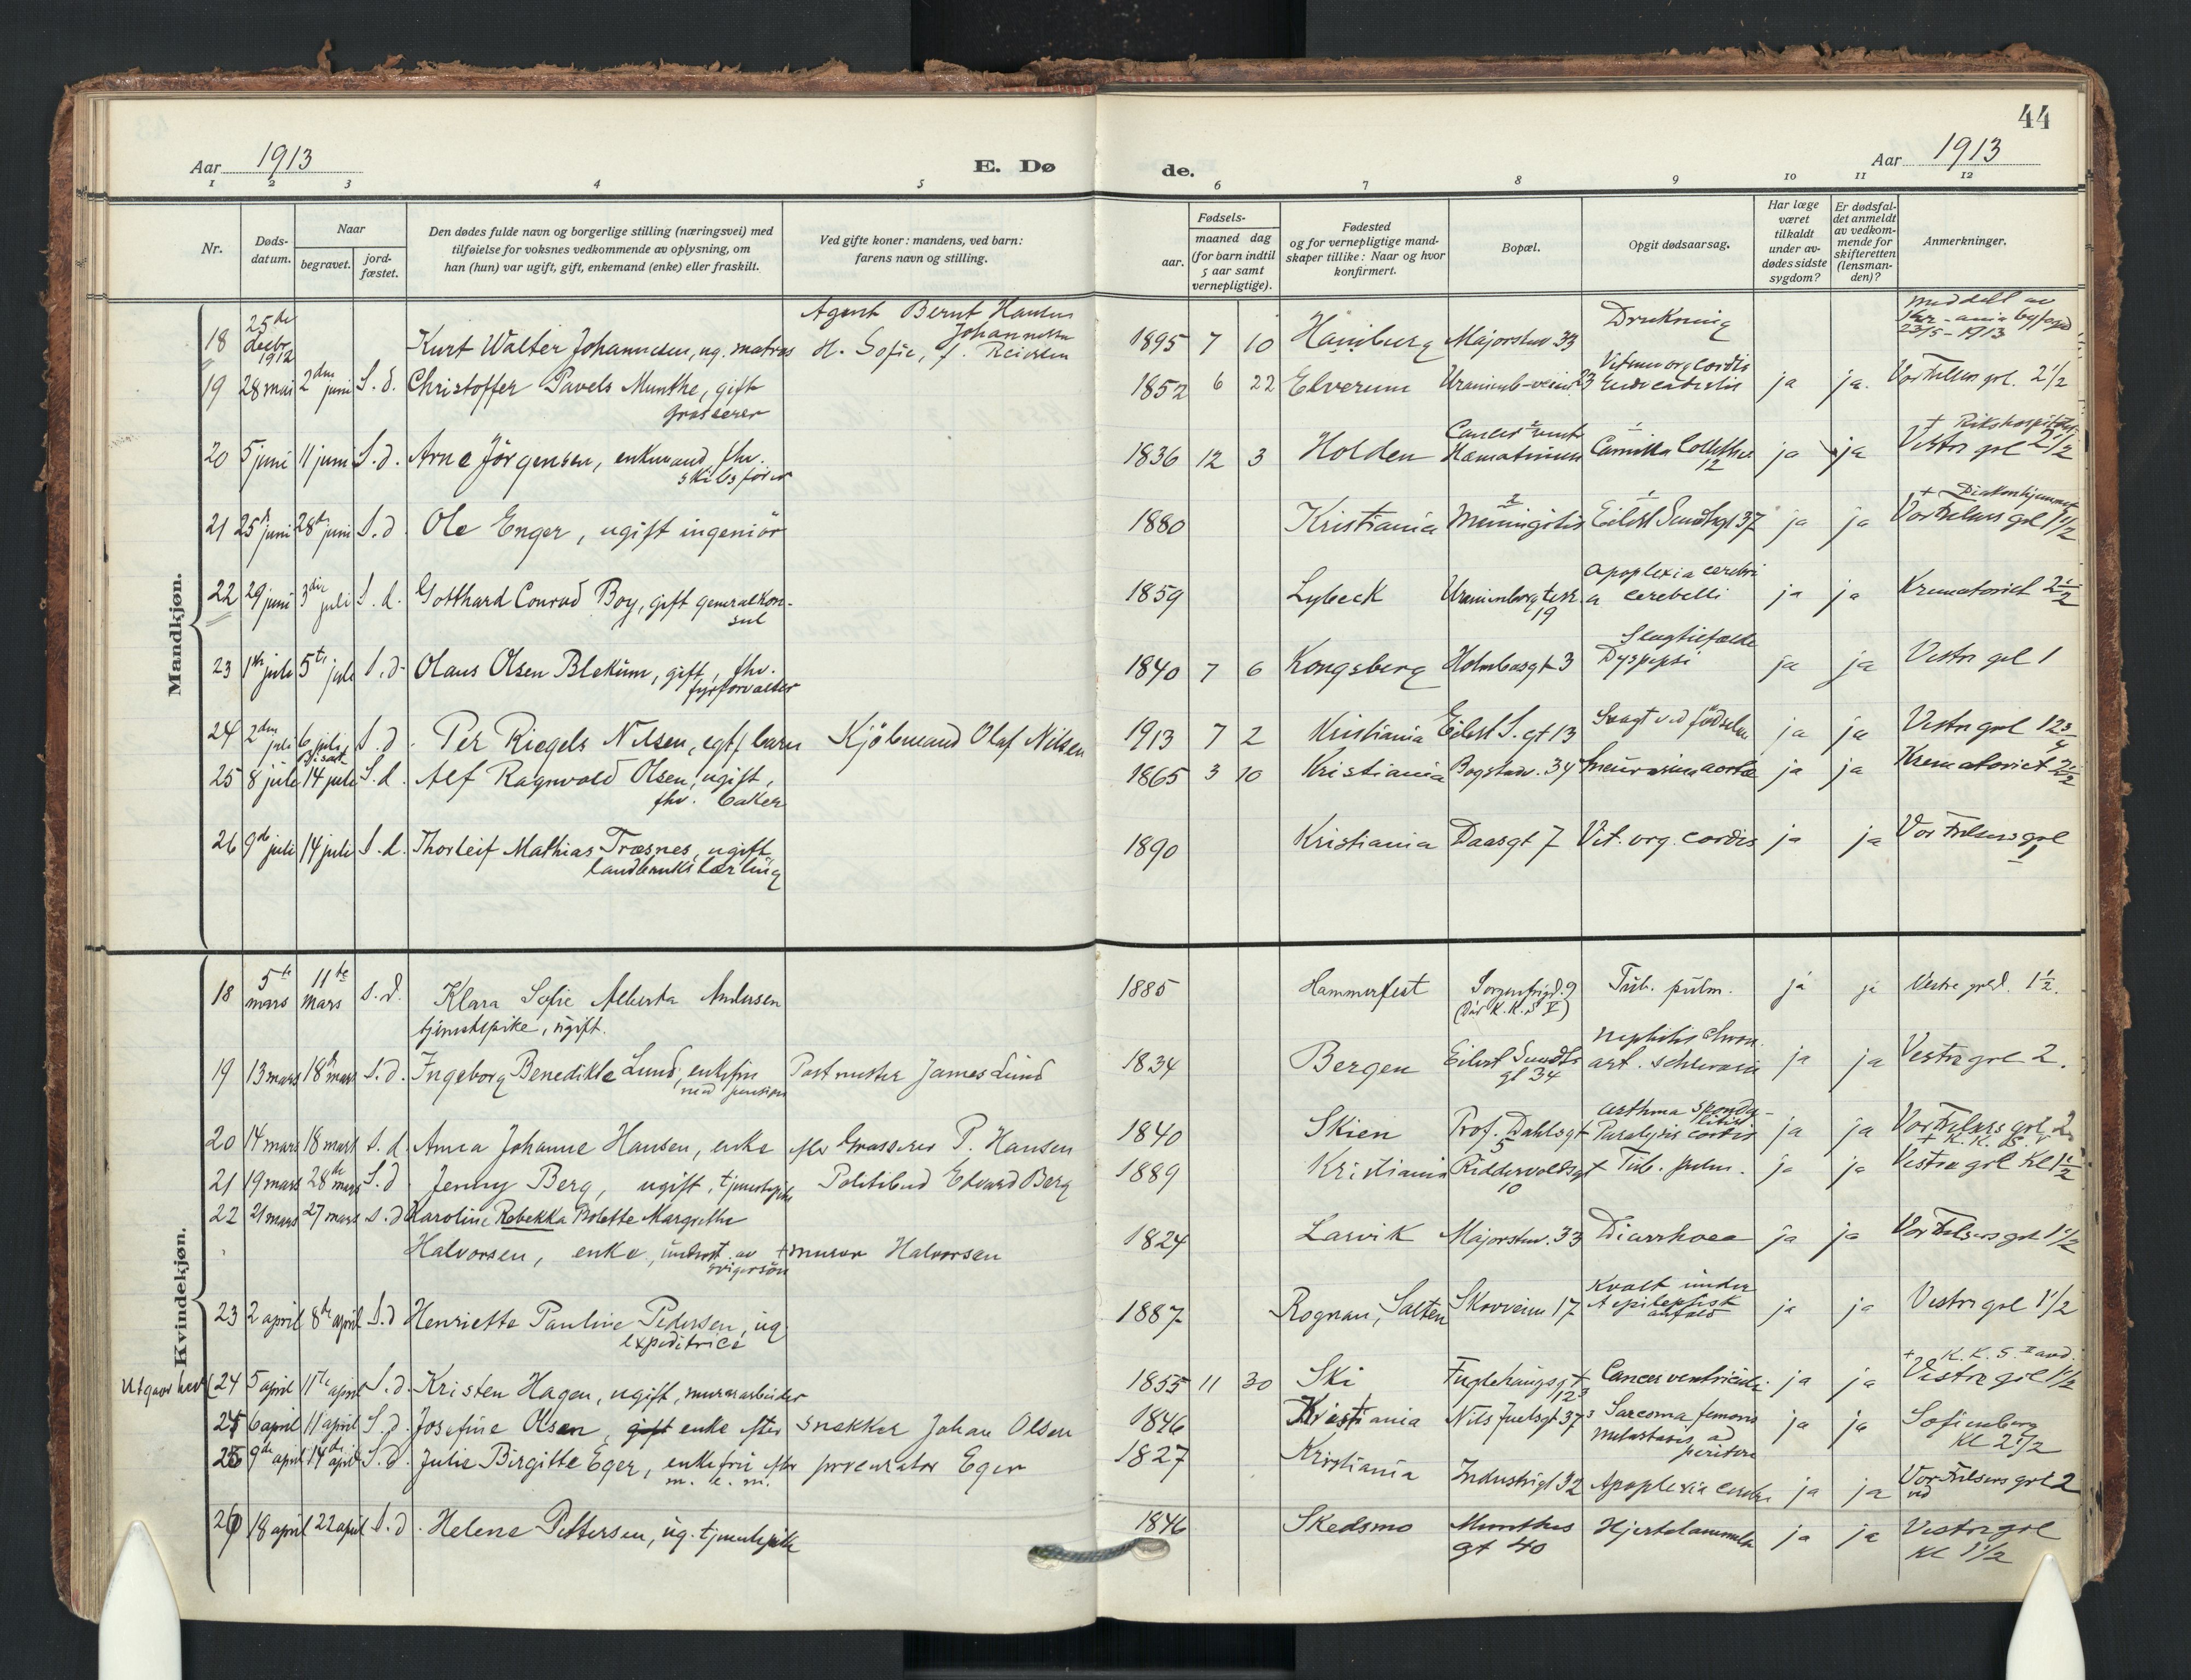 44
Aar 1913
E. Døde.
Aar 1913
1 2 3 4 5 6 7 8 9 10 11 12
Nr.
Døds-
datum.
Naar
begravet.
jord-
fæstet.
Den dødes fulde navn og borgerlige stilling (næringsvei) med
tilføielse for voksnes vedkommende av oplysning, om
han (hun) var ugift, gift, enkemand (enke) eller fraskilt.
Ved gifte koner: mandens, ved barn:
farens navn og stilling.
Fødsels-
aar.
maaned dag
(for barn indtil
5 aar samt
vernepligtige).
Fødested
og for vernepligtige mand-
skaper tillike: Naar og hvor
konfirmert.
Bopæl.
Opgit dødsaarsag.
Har læge
været
tilkaldt
under av-
dødes sidste
sygdom?
Er dødsfal-
det anmeldt
av vedkom-
mende for
skifteretten
(lensman-
den)?
Anmerkninger.
Mandkjøn.
18 25de decbr 1912 Kurt Walter Johannesen, ug. matros Agent Bernt Hansen Johannesen H. Sofie, f. 1895 7 10 Hamburg Majorstuv. 33 Drukning meddelt av 23/5-1913
19 28 mai 2den juni S.d. Christoffer Pavels Munthe, gift grosserer 1852 6 22 Elverum Uranienb-veien 23 Vitium org cordis Endocarditis ja ja. Vor Frelsers gvl. 2 1/2
20 5 juni 11 juni S.d. Arne Jörgensen, enkemand fhv. skibsförer 1836 12 3 Holden Cancer ventr Hæmatemese Camilla Colletts 12 ja ja + Rikshospitalet Vestre gvl 2 1/2
21 25de juni 28de juni S.d. Ole Enger, ugift ingeniör 1880 Kristiania Meningitis Eilert Sundtsgt 37 ja ja + Diakonhjemmet Vor Frelsers gvl 1 1/2
22 29 juni 3die juli S.d. Gotthard Conrad Boy, gift generalkon-
sul 1859 Lybeck Uranienborg terr. 19 apoplexia cerebri a cerebelli ja ja Krematoriet 2 1/2
23 1ste juli 5te juli S.d. Olaus Olsen Blekum, gift, fhv. fyrforvalter 1840 7 6 Kongsberg Holmboesgt 3 Slagtilfælde Dyspepsi ja ja Vestre gvl 1
24 2den juli 6 juli S.d. Per Riegels Nilsen, egtf. barn Kjöbmand Olaf Nilsen 1913 7 2 Kristiania Eilert S. gt 13 Svagt ved födselen ja ja Vestre gvl 12 3/4
25 8 juli 14 juli S.d. Alf Ragnvald Olsen, ugift, fhv. baker 1865 3 10 Kristiania Bogstadv. 34 Aneurisma aortæ ja ja Krematoriet 2 1/2
26 9de juli 14 juli S.d. Thorleif Mathias Træsnes, ugift landbrukslærling 1890 Kristiania Daasgt 7 Vit. org. cordis ja ja Vor Frelsers gvl 1
Kvindekjøn.
18 5te mars 11te mars S.d. Klara Sofie Alberta Andersen
tjenestepike, ugift. 1885 Hammerfest Sorgenfrigt. 9 (Död K.K.S V) Tub. pulm. ja ja Vestre gvl. 1 1/2.
19 13 mars 18de mars S.d. Ingeborg Benedikte Lund, enkefru med pension Postmester James Lund 1834 Bergen Eilert Sundts gt 34 nephritis chron. art. sclerose ja ja Vestre gvl 2.
20 14 mars 18 mars S.d. Anna Johanne Hansen, enke efter Grosserer P. Hansen 1840 Skien Prof. Dahlsgt 5 asthma Paralysis cordis ja ja Vor Frelsers gvl 2
21 19 mars 28de mars S.d. Jenny Berg, ugift, tjenestepike Politibud Edvard Berg 1889 Kristiania Riddervoldsgt 10 Tub. pulm. ja ja + K. K. S. V Vestre gvl Kl 1 1/2
22 21 mars 27 mars S.d. Karoline Rebekka Bolette Margrethe
Halvorsen, enke, underst. av svigersön + murer Halvorsen 1824 Larvik Majorstuv. 33 Diarrhoea ja ja Vor Frelsers gvl 1 1/2
23 2 april 8de april S.d. Henriette Pauline Pedersen, ug expeditrice 1887 Rognan, Salten Skovveien 17 Kvalt under et epileptisk anfald ja ja Vestre gvl 1 1/2
Utgaar her (24 5 april 11te april S.d. Kristen Hagen, ugift, murerarbeider 1855 11 30 Ski Fuglehaugsgt 12 Cancer ventriculi ja ja + K. K. S. II avd. Vestre gvl 1 1/2
24 6 april 11 april S.d. Josefine Olsen, gift enke efter snekker Johan Olsen 1846 Kristiania Nils Juelsgt 37 Sarcoma femoris metastases ad peritone ja ja Sofienberg Kl 2 1/2
25 9de april 14de april S.d. Julie Birgitte Eger, enkefru efter m. e. m. procurator Eger 1827 Kristiania Industrigt 32 Apoplexia cerebri ja ja Vor Frelsers gvl 2
26 18 april 22 april S.d. Helene Pettersen, ug. tjenestepike 1846 Skedsmo Munthes gt 40 Hjertelammelse ja ja Vestre gvl Kl 1 1/2